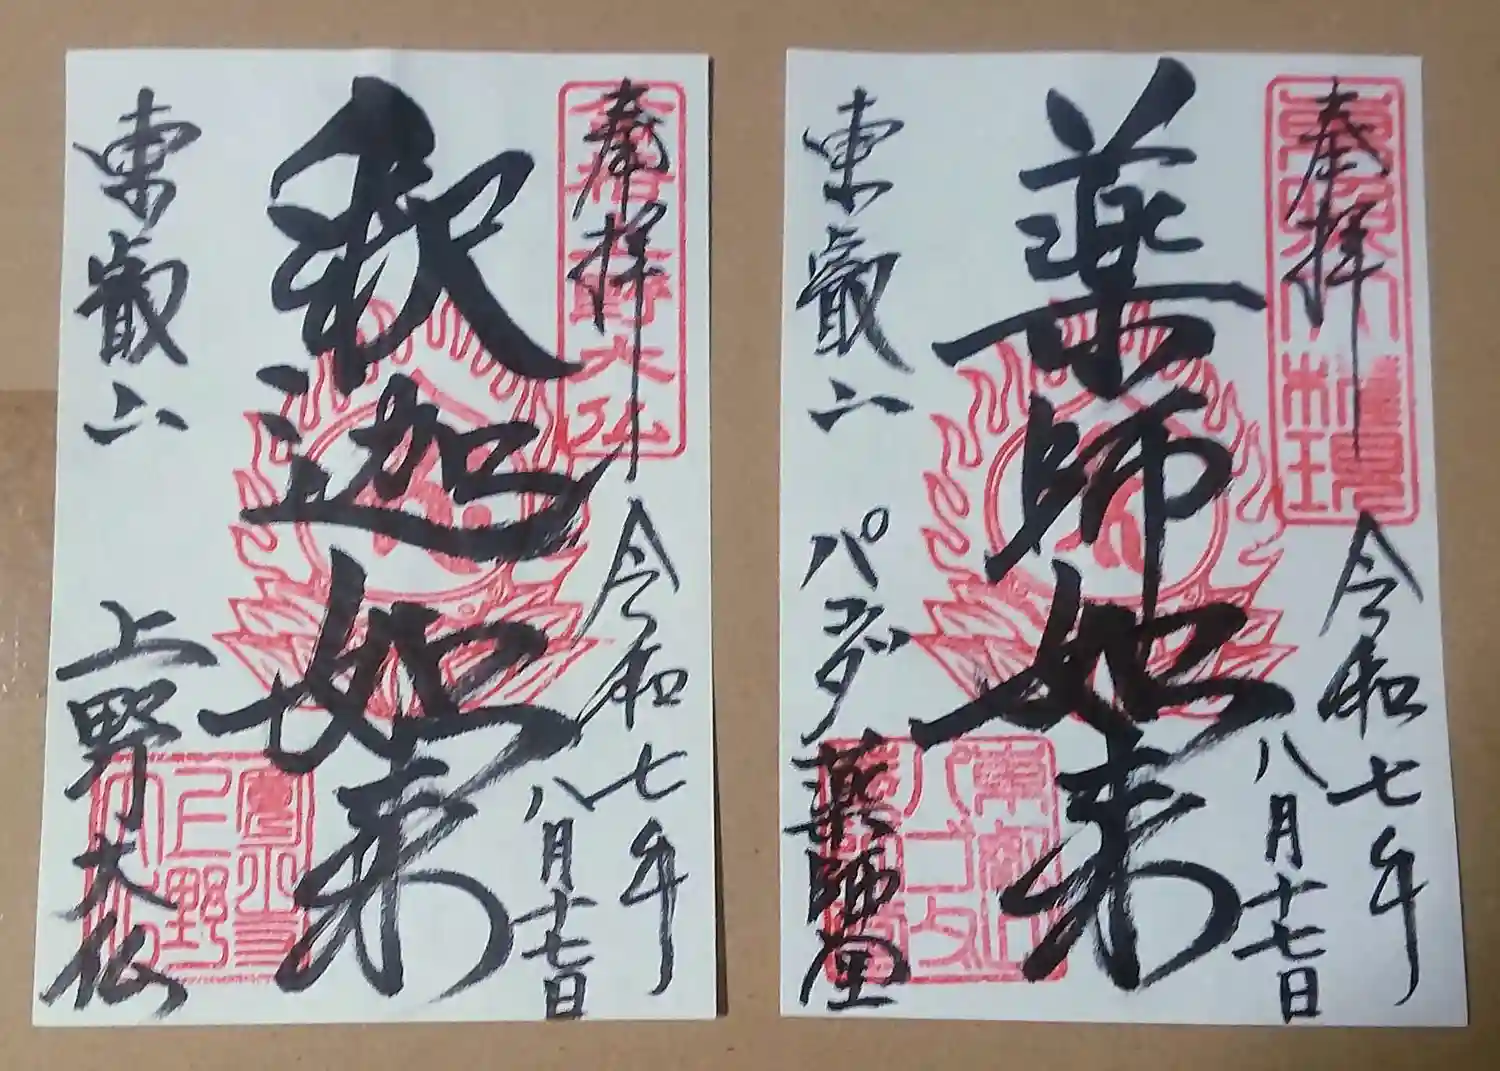 奉拝
令和七年
八月十七日
薬師如来
東叡山
パゴダ
薬師堂
奉拝
令和七年
八月十七日
釈迦如来
東叡山
上野大仏